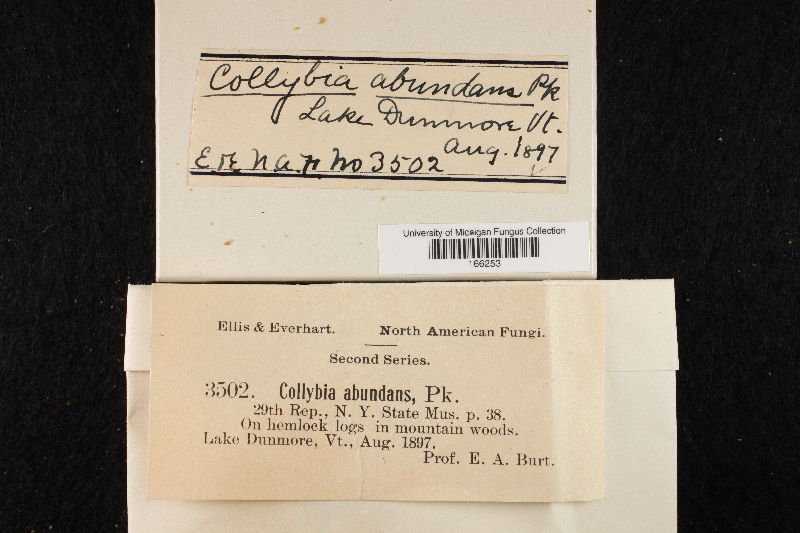 Collybia abundans Pk
Lake Dunmore Vt.
Aug. 1897
E & E N A F No 3502
University of Micaigan Fungus Collection
166253
Ellis & Everhart. North American Fungi.
Second Series.
3502. Collybia abundans, Pk.
29th Rep., N. Y. State Mus. p. 38.
On hemlock logs in mountain woods.
Lake Dunmore, Vt., Aug. 1897.
Prof. E. A. Burt.